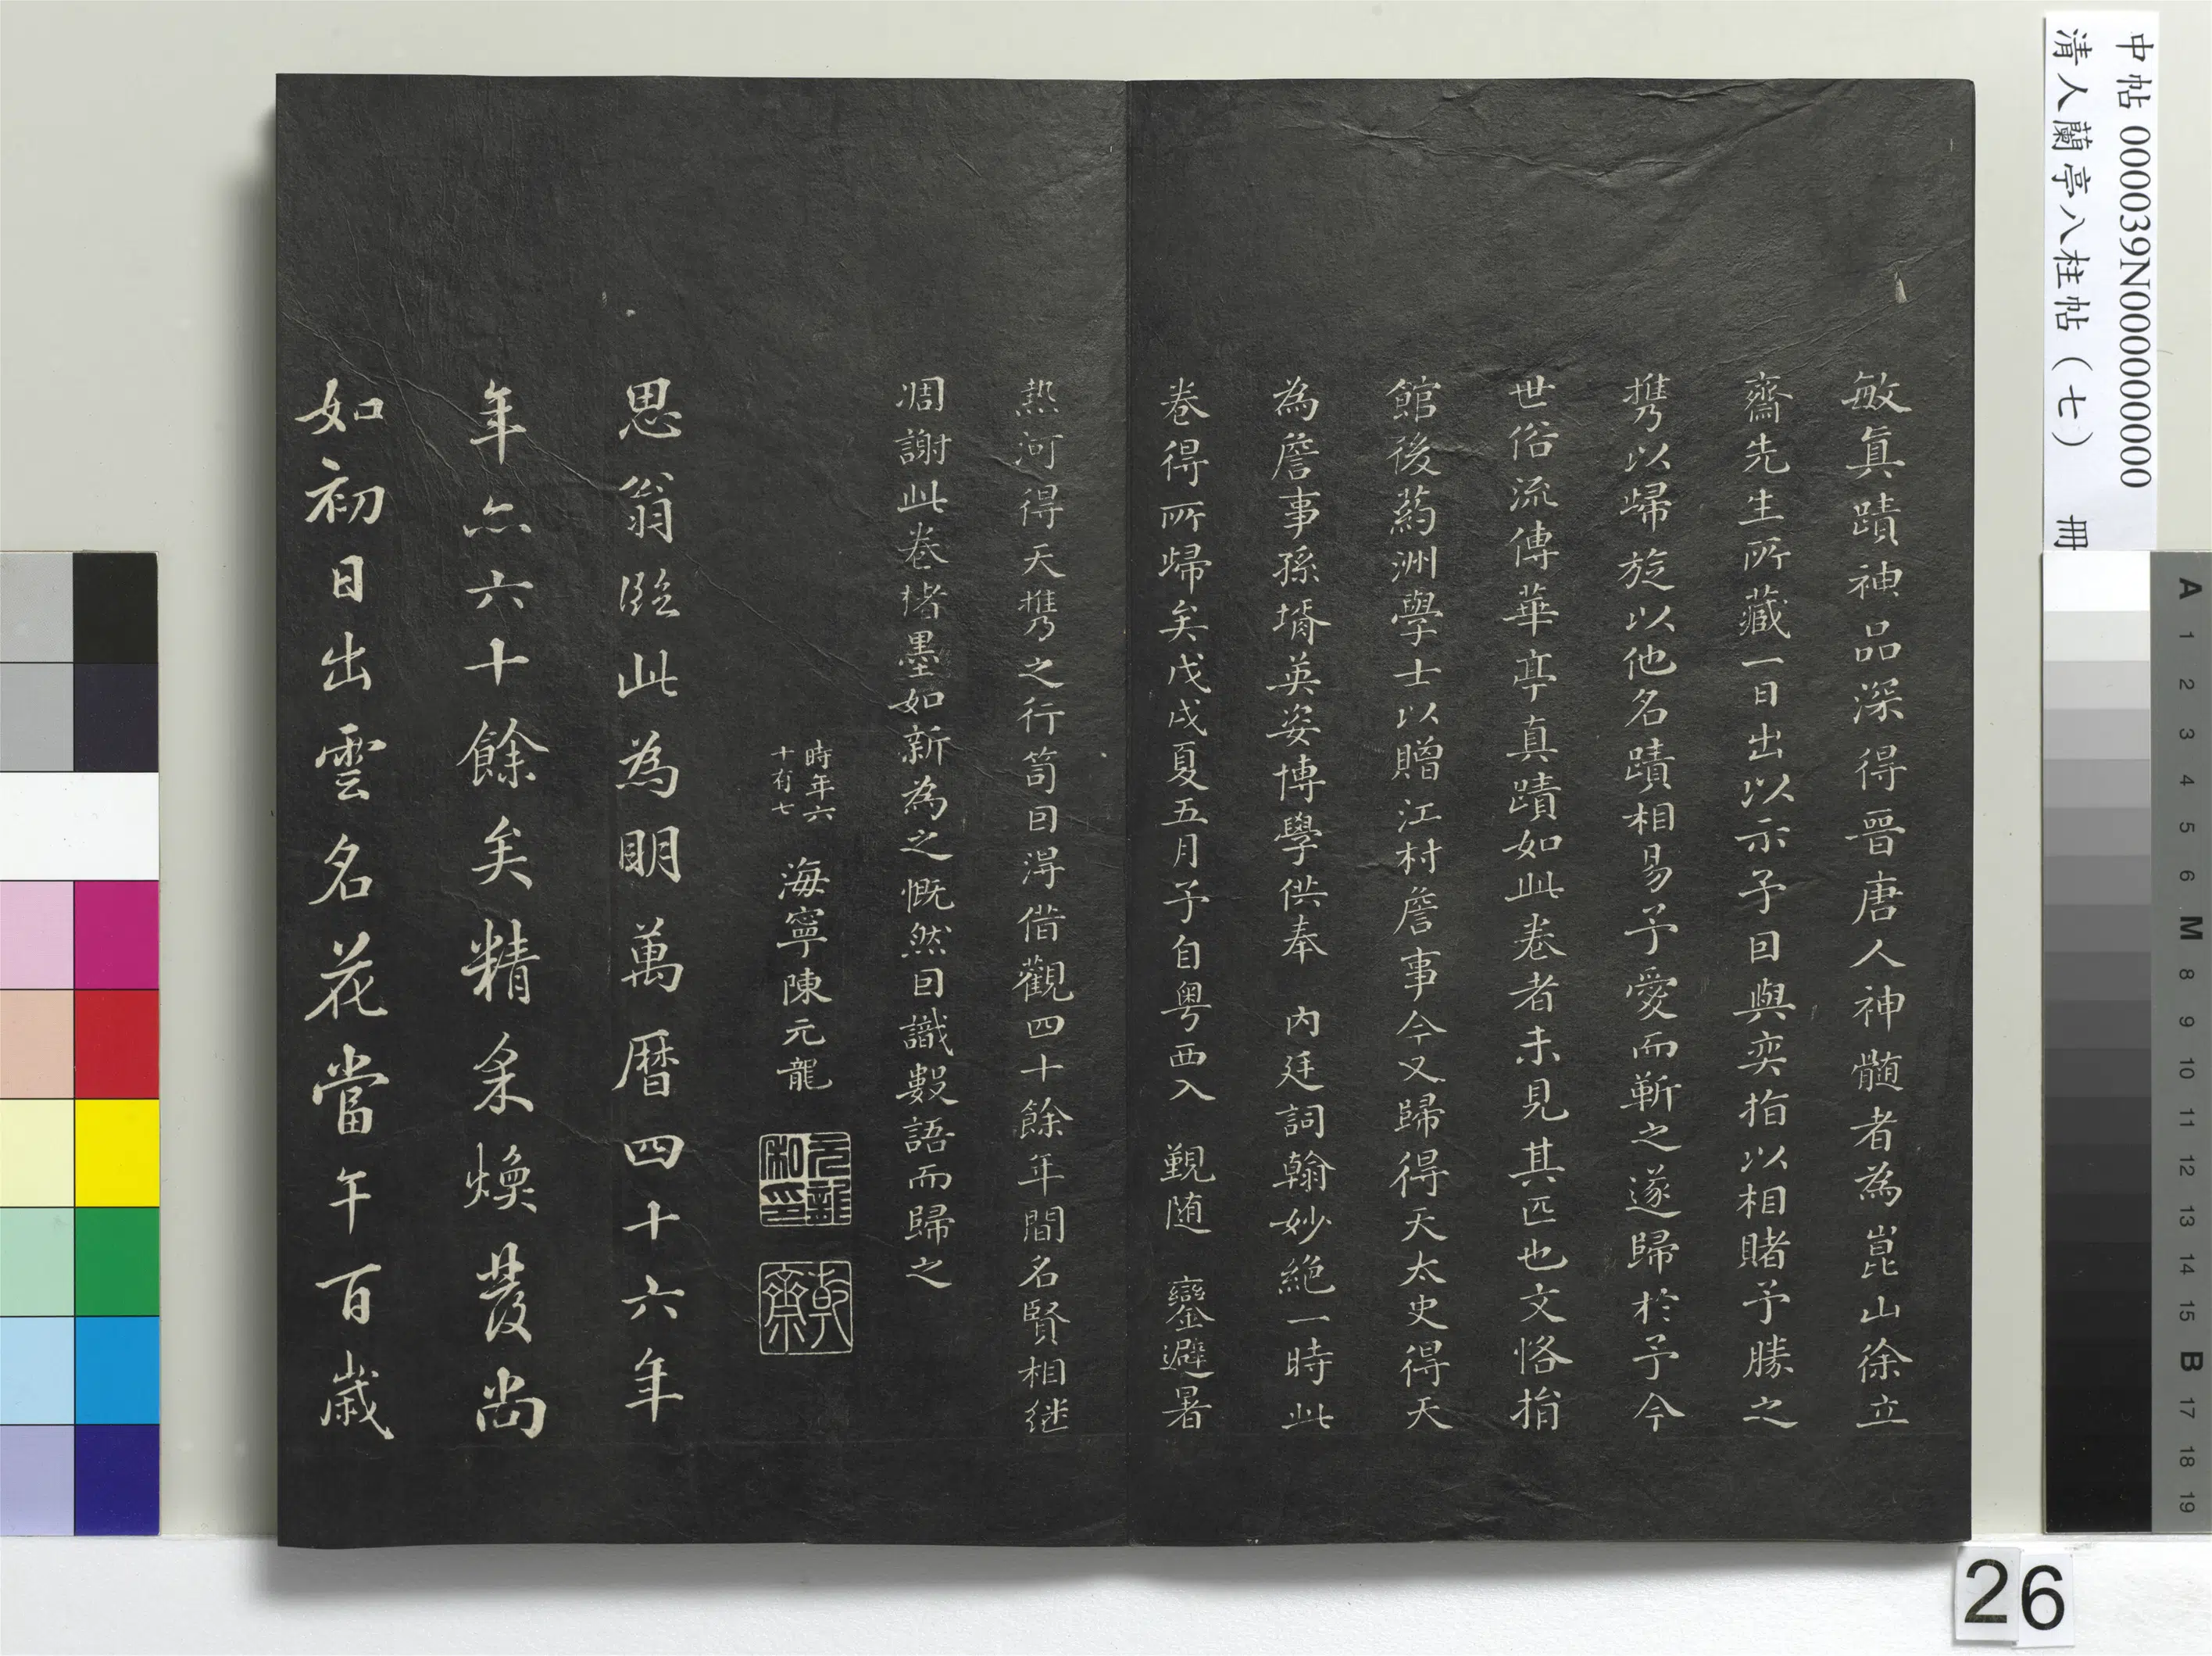 中帖 000039N000000000
清人蘭亭八柱帖（七） 冊
敏真蹟神品深得晉唐人神髓者為崑山徐立
齋先生所藏一日出以示予曰與奕指以相賭予勝之
携以歸旋以他名蹟相易予愛而靳之遂歸於予今
世俗流傳華亭真蹟如此卷者未見其匹也文恪捐
館後葯洲學士以贈江村詹事今又歸得天太史得天
為詹事孫壻英姿博學供奉 內廷詞翰妙絶一時此
卷得所歸矣戊戌夏五月予自粤西入 覲随 鑾避暑
熱河得天携之行笥因得借觀四十餘年間名賢相継
凋謝此卷楮墨如新為之慨然因識數語而歸之
時年六
十有七
海寧陳元龍
元龍
私印
乾
齋
思翁臨此為明萬曆四十六年
年亦六十餘矣精采煥發尚
如初日出雲名花當午百歲
A 1 2 3 4 5 6 M 8 9 10 11 12 13 14 15 B 17 18 19
26